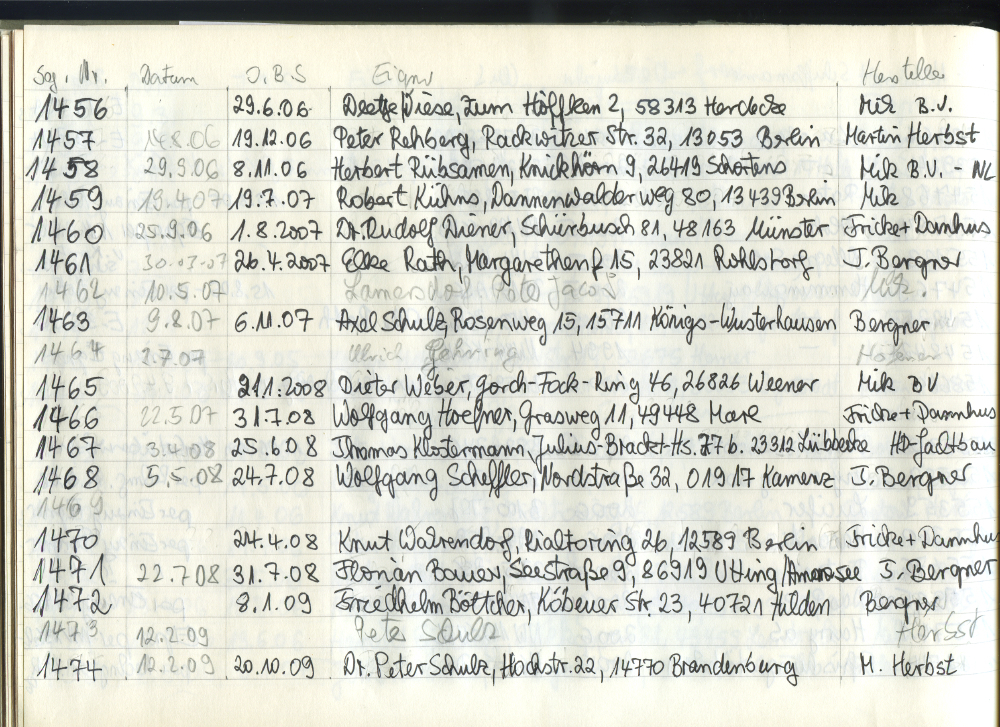 Seg. Nr. Datum O.B.S Eigner Hersteller
1456 29.6.06 Zum Höffken 2, 58313 Herdecke Mik B.V.
1457 14.8.06 19.12.06 Peter Rehberg, Rackwitzer Str. 32, 13053 Berlin Martin Herbst
1458 29.9.06 8.11.06 Herbert Rübsamen, Knickhörn 9, 26419 Schortens Mik B.V. - NL
1459 19.4.07 19.7.07 Robert Kühns, Dannenwalder Weg 80, 13439 Berlin Mik
1460 25.9.06 1.8.2007 Dr. Rudolf Diener, Schürbusch 81, 48163 Münster Fricke + Damhus
1461 30.03.07 26.4.2007 Elke Rath, 15, 23821 Rohlstorf J. Bergner
1462 10.5.07 Lamersdorf Peter Jacob Mik.
1463 9.8.07 6.11.07 Axel Schulz, Rosenweg 15, 15711 Königs-Wusterhausen Bergner
1464 2.7.07 Ulrich Göhring
1465 21.1.2008 Dieter Weber, Gorch-Fock-Ring 46, 26826 Weener Mik BV
1466 22.5.07 31.7.08 Wolfgang Hoefner, Grasweg 11, 49448 Fricke + Dammhus
1467 3.4.08 25.6.08 Thomas Klostermann, 77b. 23312 Lübbecke HD-Jachtbau
1468 5.5.08 24.7.08 Wolfgang Scheffler, Nordstraße 32, 01917 Kamenz J. Bergner
1469
1470 24.4.08 Knut Rialtoring 26, 12589 Berlin Fricke + Dammhu
1471 22.7.08 31.7.08 Florian Bauer, Seestraße 9, 86919 Utting/Ammersee J. Bergner
1472 8.1.09 Friedhelm Böttcher, Str. 23, 40721 Hilden Bergner
1473 12.2.09 Peter Schulz Herbst
1474 12.2.09 20.10.09 Dr. Peter Schulz, Hochstr. 22, 14770 Brandenburg M. Herbst